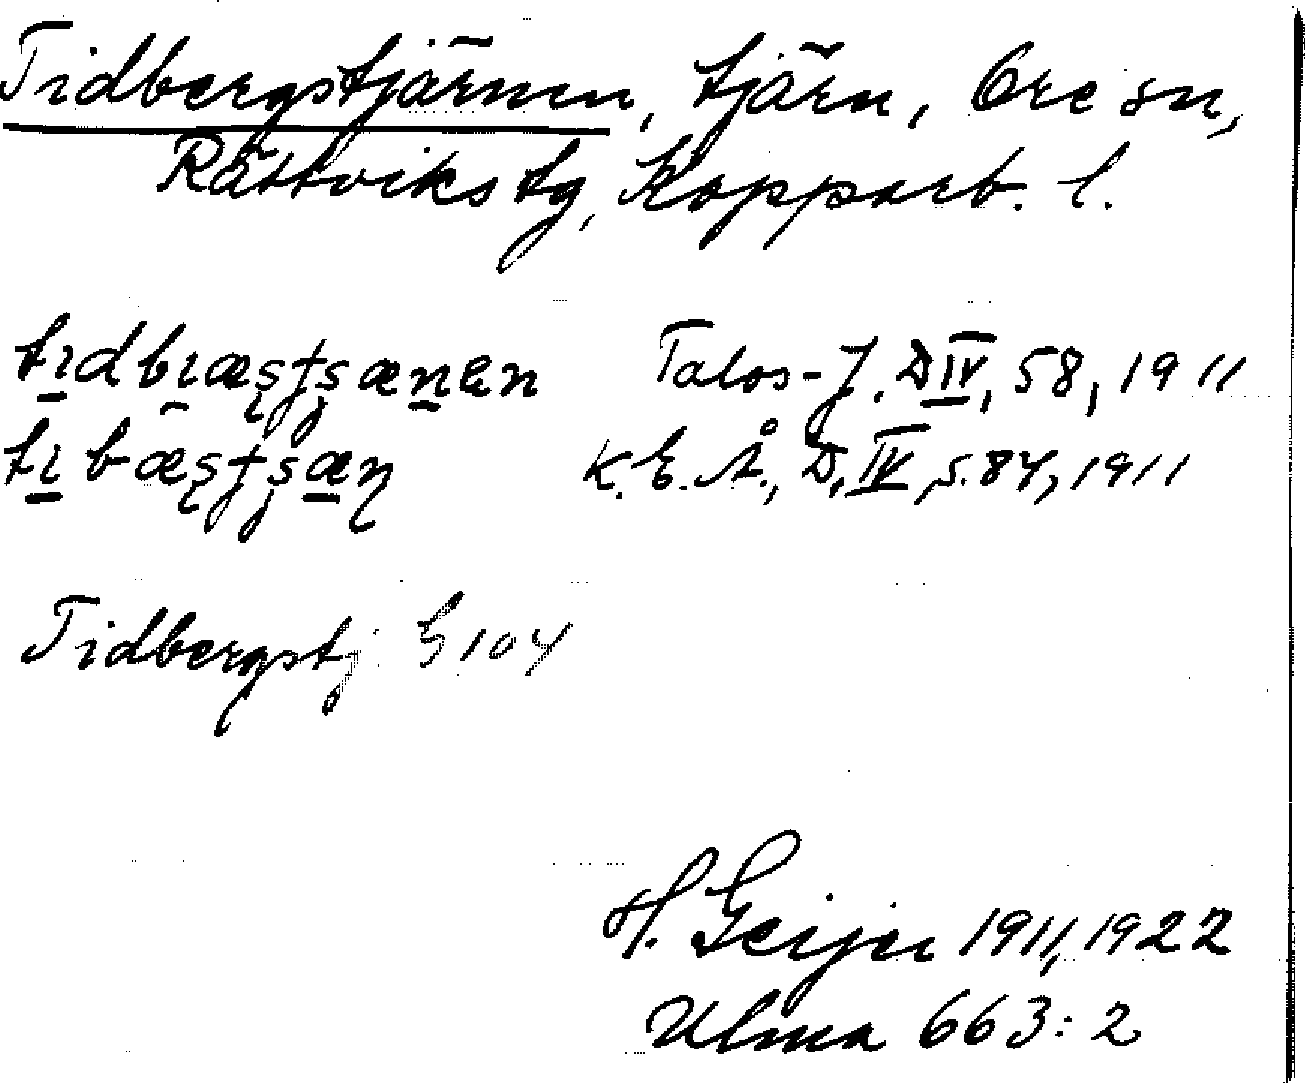 Tidbergstjärnen, tjärn, Ore sn,
Rättviks tg, Kopparb. l.
Talos-J. D IV, 58, 1911
K.E.Å., D. IV, s. 84, 1911
Tidbergstj G 104
H. Geijer 1911, 1922
Ulma 663:2